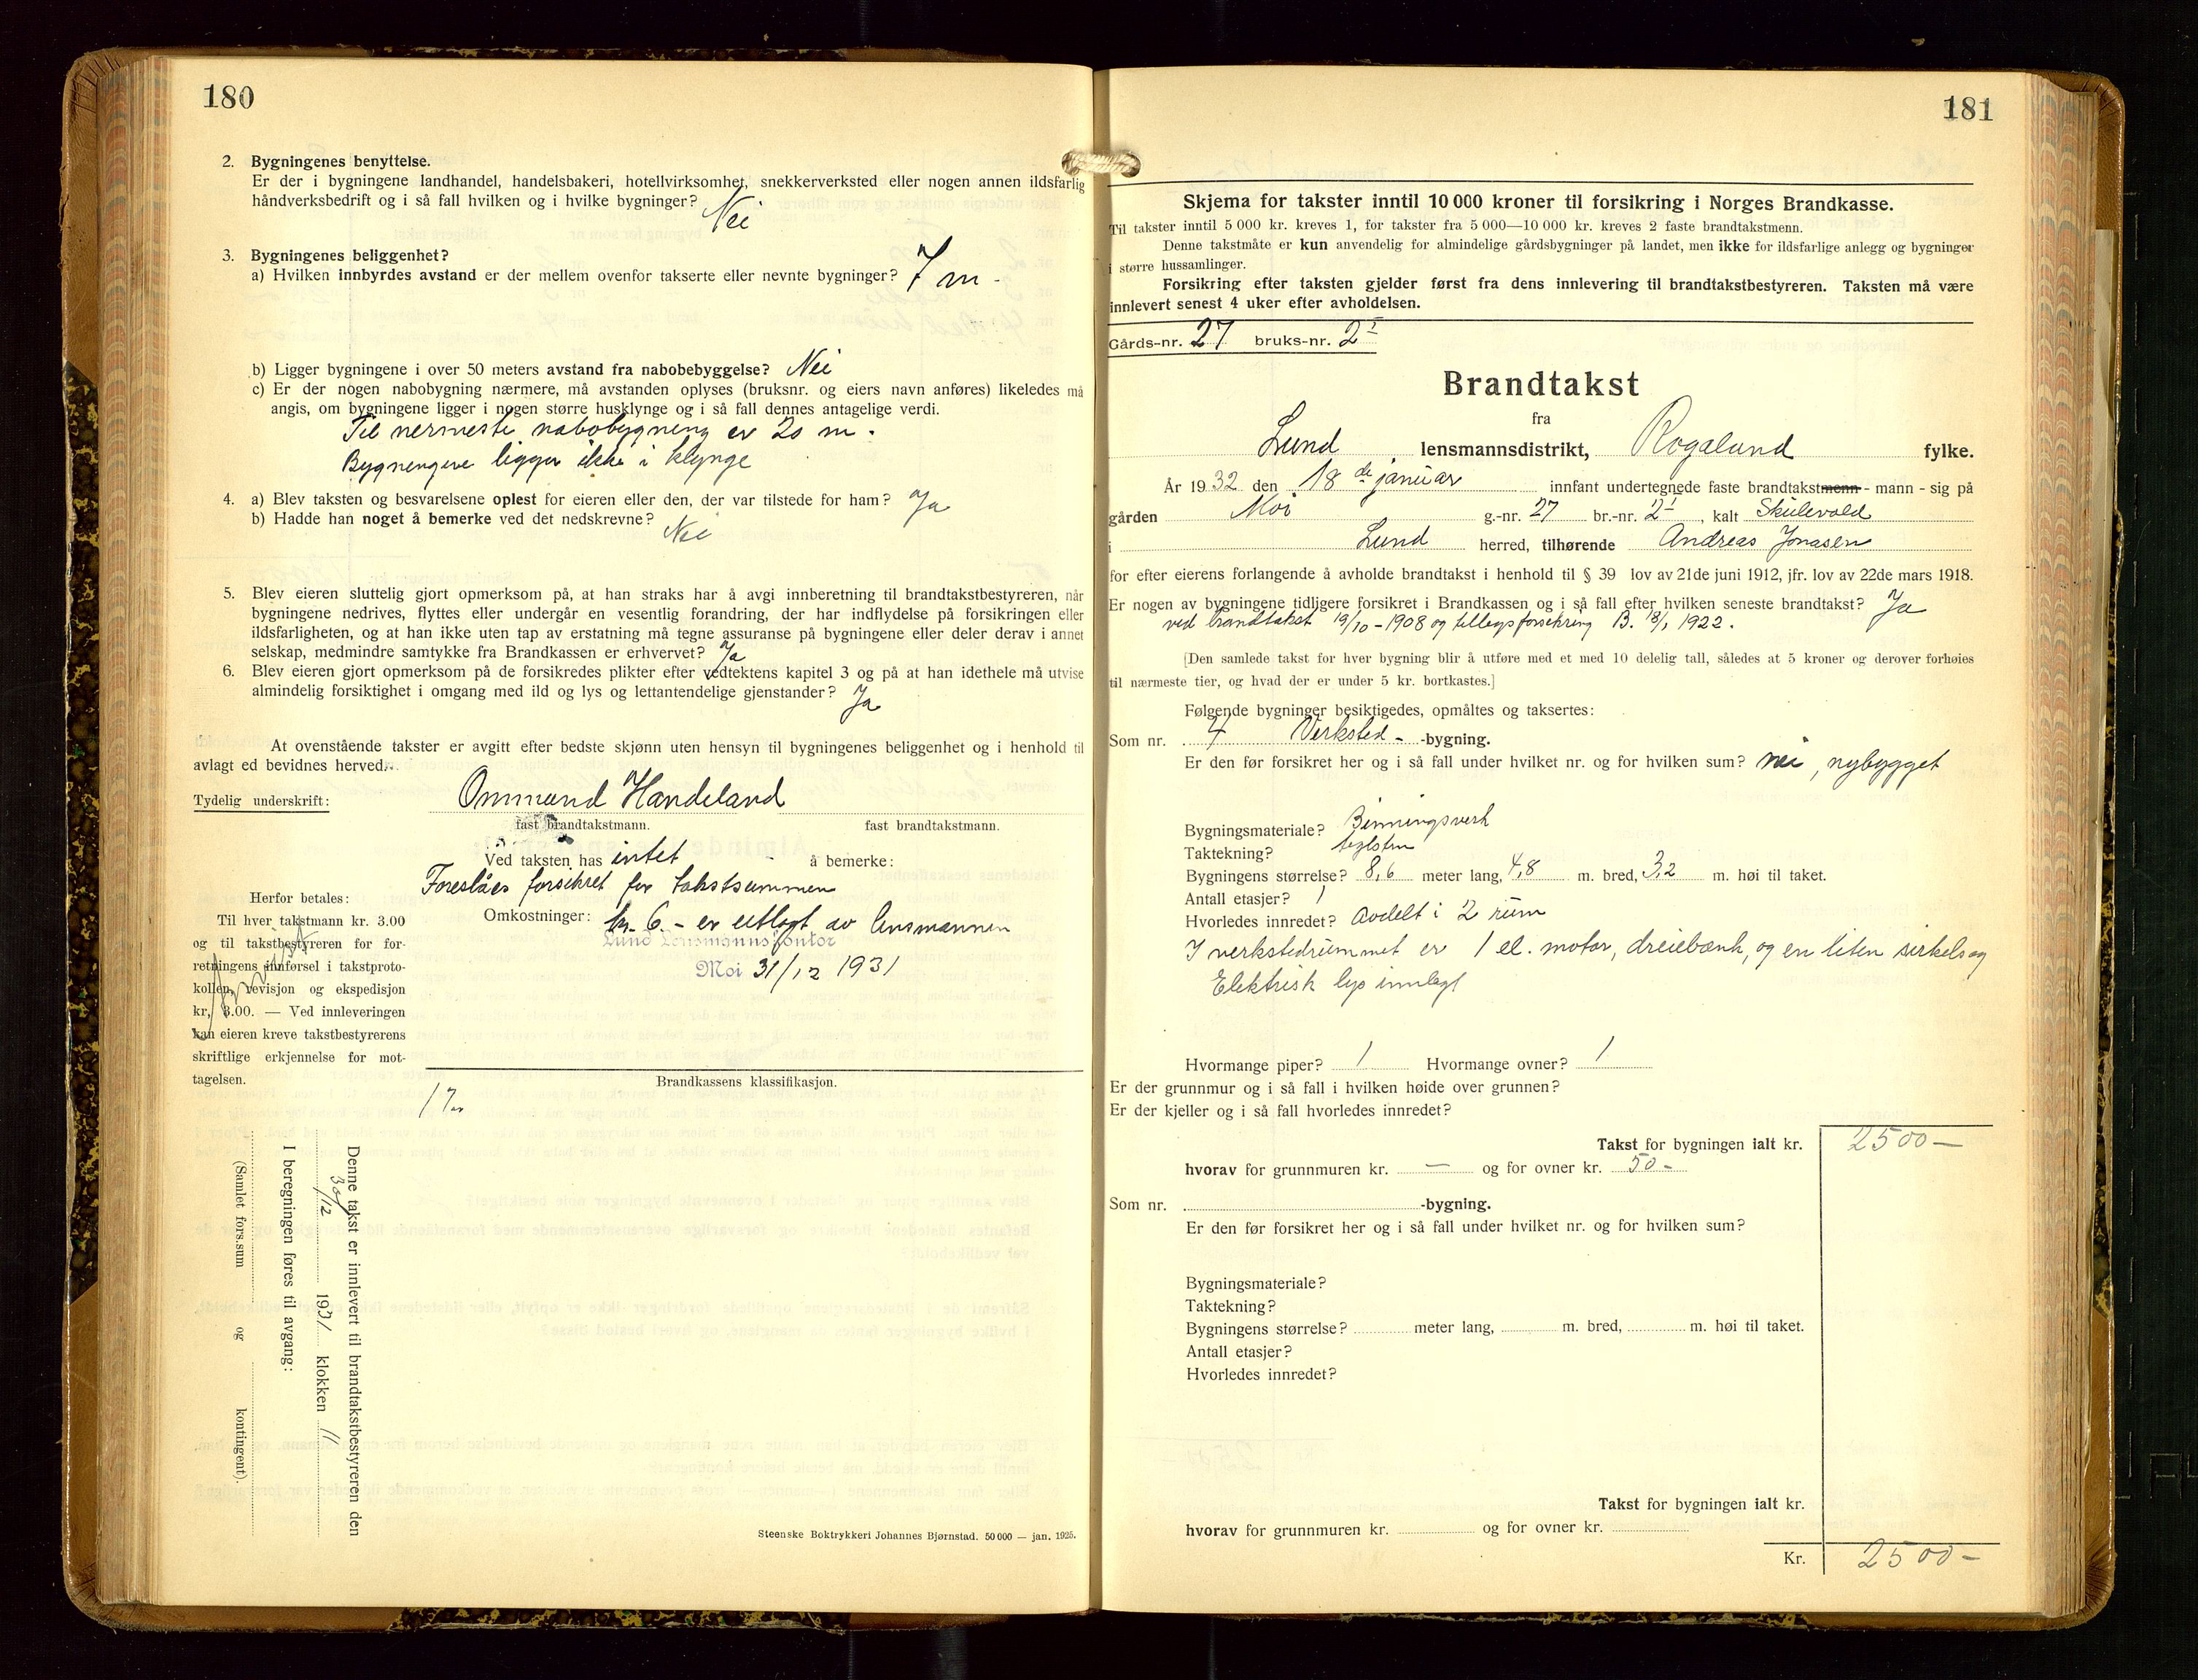 180
2. Bygningenes benyttelse.
Er der i bygningene landhandel, handelsbakeri, hotellvirksomhet, snekkerverksted eller nogen annen ildsfarlig
håndverksbedrift og i så fall hvilken og i hvilke bygninger? Nei
3. Bygningenes beliggenhet?
a) Hvilken innbyrdes avstand er der mellem ovenfor takserte eller nevnte bygninger? 7 m -
b) Ligger bygningene i over 50 meters avstand fra nabobebyggelse? Nei
c) Er der nogen nabobygning nærmere, må avstanden oplyses (bruksnr. og eiers navn anføres) likeledes må
angis, om bygningene ligger i nogen større husklynge og i så fall dennes antagelige verdi.
Til nermeste nabobygning er 20 m.
Bygnengene ligger ikke i klynge
4. a) Blev taksten og besvarelsene oplest for eieren eller den, der var tilstede for ham? Ja
b) Hadde han noget å bemerke ved det nedskrevne? Nei
5. Blev eieren sluttelig gjort opmerksom på, at han straks har å avgi innberetning til brandtakstbestyreren, når
bygningene nedrives, flyttes eller undergår en vesentlig forandring, der har indflydelse på forsikringen eller
ildsfarligheten, og at han ikke uten tap av erstatning må tegne assuranse på bygningene eller deler derav i annet
selskap, medmindre samtykke fra Brandkassen er erhvervet? Ja
6. Blev eieren gjort opmerksom på de forsikredes plikter efter vedtektens kapitel 3 og på at han idethele må utvise
almindelig forsiktighet i omgang med ild og lys og lettantendelige gjenstander? Ja
At ovenstående takster er avgitt efter bedste skjønn uten hensyn til bygningenes beliggenhet og i henhold til
avlagt ed bevidnes herved.
Tydelig underskrift: Ommund Handeland
fast brandtakstmann. fast brandtakstmann.
Ved taksten has intet - å bemerke:
Foreslåes forsikret for takstsummen
Omkostninger: kr. 6.- er utlagt av lensmannen
Lund Lensmannskontor
Moi 31/12 1931
Herfor betales:
Til hver takstmann kr. 3.00
og til takstbestyreren for for-
retningens innførsel i takstproto-
kollen, revisjon og ekspedisjon
kr. 3.00. — Ved innleveringen
kan eieren kreve takstbestyrerens
skriftlige erkjennelse for mot-
tagelsen.
Brandkassens klassifikasjon.
Denne takst er innlevert til brandtakstbestyreren den
30/12 1931 klokken 11
I beregningen føres til avgang:
(Samlet fors.sum og kontingent).
Steenske Boktrykkeri Johannes Bjørnstad. 50 000 — jan. 1925.
181
Skjema for takster inntil 10 000 kroner til forsikring i Norges Brandkasse.
Til takster inntil 5 000 kr. kreves 1, for takster fra 5 000—10 000 kr. kreves 2 faste brandtakstmenn.
Denne takstmåte er kun anvendelig for almindelige gårdsbygninger på landet, men ikke for ildsfarlige anlegg og bygninger
i større hussamlinger.
Forsikring efter taksten gjelder først fra dens innlevering til brandtakstbestyreren. Taksten må være
innlevert senest 4 uker efter avholdelsen.
Gårds-nr. 27 bruks-nr. 2 1
Brandtakst
fra
Lund lensmannsdistrikt, Rogaland fylke.
År 1932 den 18 de januar innfant undertegnede faste brandtakstmenn - mann - sig på
gården Moi g.-nr. 27 br.-nr. 2 1, kalt Skulevold
i Lund herred, tilhørende Andreas Jonasen
for efter eierens forlangende å avholde brandtakst i henhold til § 39 lov av 21de juni 1912, jfr. lov av 22de mars 1918.
Er nogen av bygningene tidligere forsikret i Brandkassen og i så fall efter hvilken seneste brandtakst? Ja
ved brandtakst 19/10 - 1908 og tillegsforsikring B. 18/1 1922.
[Den samlede takst for hver bygning blir å utføre med et med 10 delelig tall, således at 5 kroner og derover forhøies
til nærmeste tier, og hvad der er under 5 kr. bortkastes.]
Følgende bygninger besiktigedes, opmåltes og taksertes:
Som nr. 4 Verksted - -bygning.
Er den før forsikret her og i så fall under hvilket nr. og for hvilken sum? nei, nybygget
Bygningsmateriale? Binningsverk
Taktekning? teglsten
Bygningens størrelse? 8,6 meter lang, 4,8 m. bred, 3,2 m. høi til taket.
Antall etasjer? 1
Hvorledes innredet? Avdelt i 2 rum
I verkstedrummet er 1 el. motor, dreiebænk, og en liten sirkelsag
Elektrisk lys innlagt
Hvormange piper? 1 Hvormange ovner? 1
Er der grunnmur og i så fall i hvilken høide over grunnen?
Er der kjeller og i så fall hvorledes innredet?
Takst for bygningen ialt kr. 2500 —
hvorav for grunnmuren kr. — og for ovner kr. 50 -
Som nr. -bygning.
Er den før forsikret her og i så fall under hvilket nr. og for hvilken sum?
Bygningsmateriale?
Taktekning?
Bygningens størrelse? meter lang, m. bred, m. høi til taket.
Antall etasjer?
Hvorledes innredet?
Takst for bygningen ialt kr.
hvorav for grunnmuren kr. og for ovner kr.
Kr. 2500 -